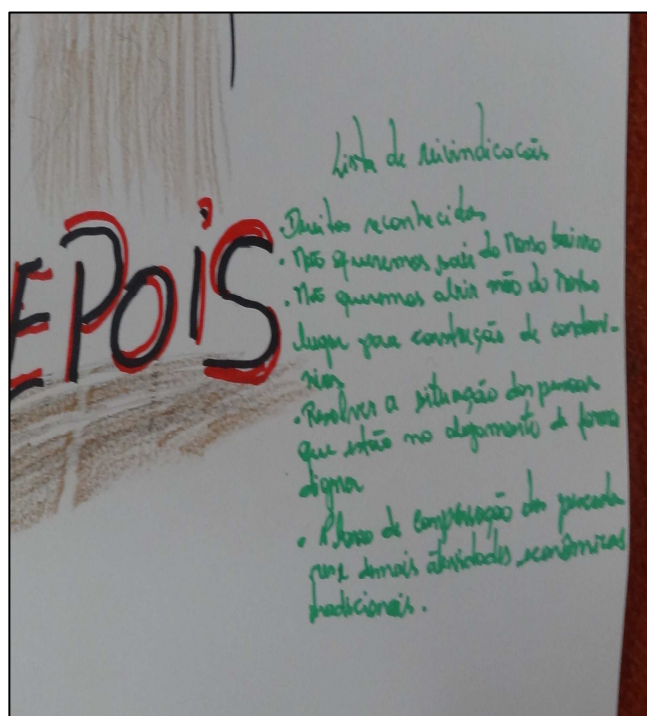 EPOIS
Lista de reivindicações
Direitos reconhecidos
• Não queremos sair do nosso bairro
• Não queremos abrir mão do nosso
lugar para construção de condomí-
nios
• Resolver a situação das pessoas
que estão no alojamento de forma
digna
• Plano de compensação da pescada
demais atividades econômicas
tradicionais.